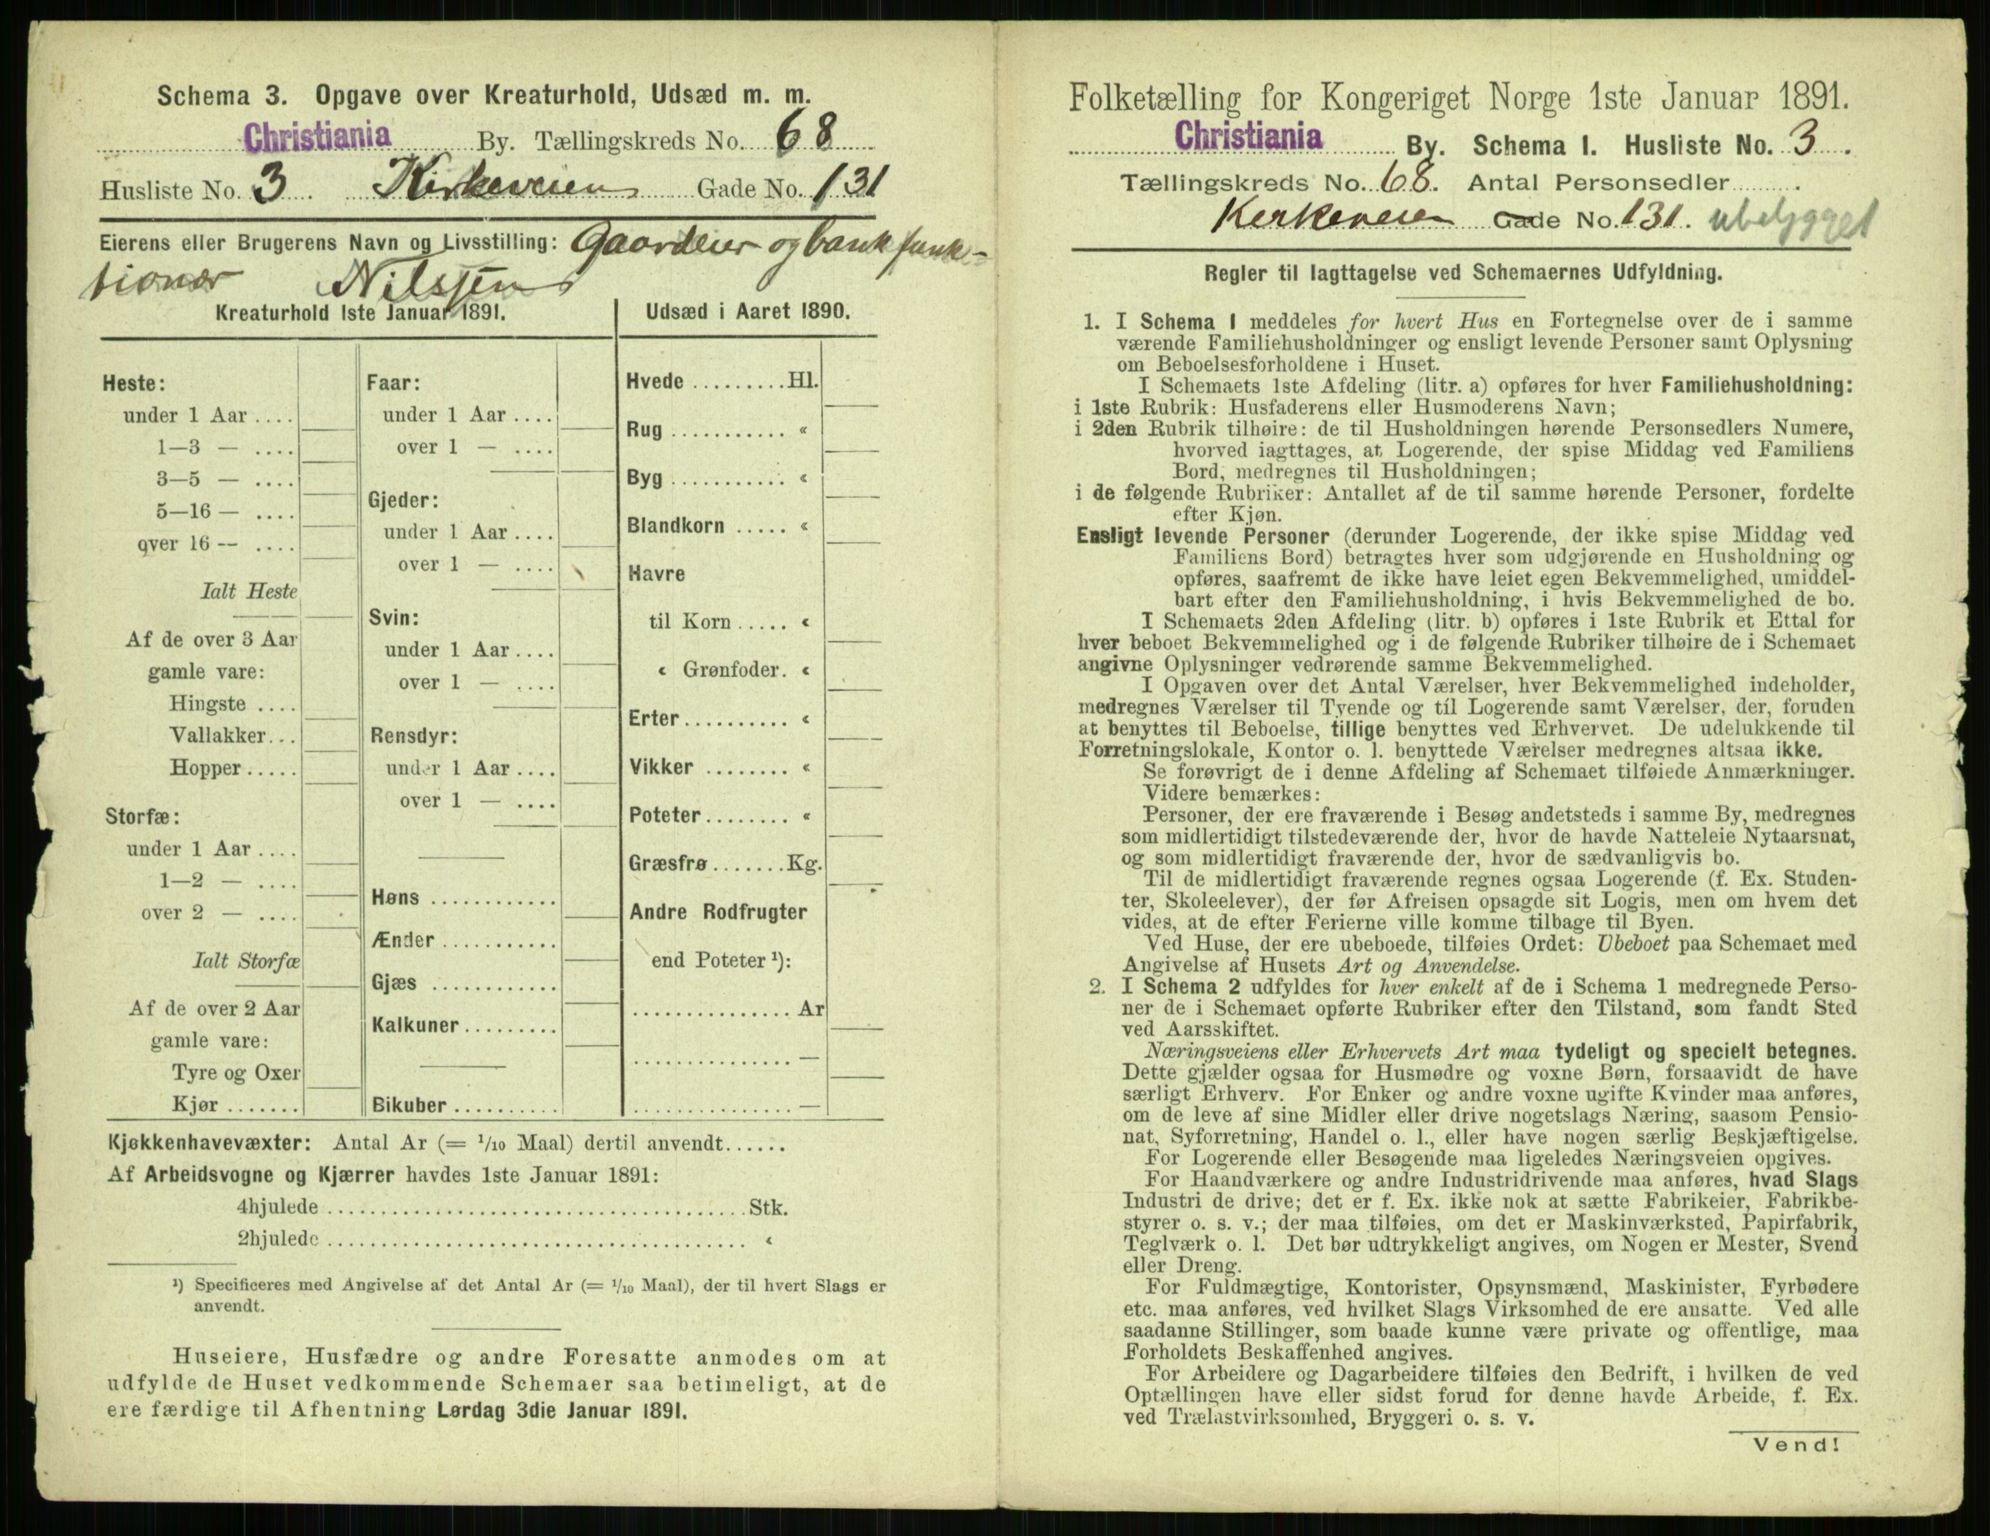 Schema 3. Opgave over Kreaturhold, Udsæd m. m.
Christiania By. Tællingskreds No. 68
Husliste No. 3 Kirkeveien Gade No. 131
Eierens eller Brugerens Navn og Livsstilling: Gaardeier og bankfunk-
tionær Nilssen
Kreaturhold 1ste Januar 1891.
Heste:
under 1 Aar ....
1—3 — ....
3—5 — ....
5—16 — ....
over 16 — ....
Ialt Heste
Af de over 3 Aar
gamle vare:
Hingste ....
Vallakker...
Hopper.....
Storfæ:
under 1 Aar ....
1—2 — ....
over 2 — ....
Ialt Storfæ
Af de over 2 Aar
gamle vare:
Tyre og Oxer
Kjør .......
Faar:
under 1 Aar ....
over 1 — ....
Gjeder:
under 1 Aar ....
over 1 — ....
Svin:
under 1 Aar ....
over 1 — ....
Rensdyr:
under 1 Aar ....
over 1 — ....
Høns ............
Ænder ...........
Gjæs ............
Kalkuner.........
Bikuber ..........
Udsæd i Aaret 1890.
Hvede .........Hl.
Rug ........... «
Byg ........... «
Blandkorn ..... «
Havre
til Korn ..... «
« Grønfoder. «
Erter.......... «
Vikker ........ «
Poteter........ «
Græsfrø .......Kg.
Andre Rodfrugter
end Poteter ¹):
............... Ar
............... —
............... —
Kjøkkenhavevæxter: Antal Ar (= 1/10 Maal) dertil anvendt......
Af Arbeidsvogne og Kjærrer havdes 1ste Januar 1891:
4hjulede ........................................Stk.
2hjulede ........................................ «
¹) Specificeres med Angivelse af det Antal Ar (= 1/10 Maal), der til hvert Slags er
anvendt.
Huseiere, Husfædre og andre Foresatte anmodes om at
udfylde de Huset vedkommende Schemaer saa betimeligt, at de
ere færdige til Afhentning Lørdag 3die Januar 1891.
Folketælling for Kongeriget Norge 1ste Januar 1891.
Christiania By. Schema 1. Husliste No. 3.
Tællingskreds No. 68. Antal Personsedler..........
Kerkeveien Gade No. 131. ubebygget
Regler til Iagttagelse ved Schemaernes Udfyldning.
1. I Schema 1 meddeles for hvert Hus en Fortegnelse over de i samme
værende Familiehusholdninger og ensligt levende Personer samt Oplysning
om Beboelsesforholdene i Huset.
I Schemaets 1ste Afdeling (litr. a) opføres for hver Familiehusholdning:
i 1ste Rubrik: Husfaderens eller Husmoderens Navn;
i 2den Rubrik tilhøire: de til Husholdningen hørende Personsedlers Numere,
hvorved iagttages, at Logerende, der spise Middag ved Familiens
Bord, medregnes til Husholdningen;
i de følgende Rubriker: Antallet af de til samme hørende Personer, fordelte
efter Kjøn.
Ensligt levende Personer (derunder Logerende, der ikke spise Middag ved
Familiens Bord) betragtes hver som udgjørende en Husholdning og
opføres, saafremt de ikke have leiet egen Bekvemmelighed, umiddel-
bart efter den Familiehusholdning, i hvis Bekvemmelighed de bo.
I Schemaets 2den Afdeling (litr. b) opføres i 1ste Rubrik et Ettal for
hver beboet Bekvemmelighed og i de følgende Rubriker tilhøire de i Schemaet
angivne Oplysninger vedrørende samme Bekvemmelighed.
I Opgaven over det Antal Værelser, hver Bekvemmelighed indeholder,
medregnes Værelser til Tyende og til Logerende samt Værelser, der, foruden
at benyttes til Beboelse, tillige benyttes ved Erhvervet. De udelukkende til
Forretningslokale, Kontor o. l. benyttede Værelser medregnes altsaa ikke.
Se forøvrigt de i denne Afdeling af Schemaet tilføiede Anmærkninger.
Videre bemærkes:
Personer, der ere fraværende i Besøg andetsteds i samme By, medregnes
som midlertidigt tilstedeværende der, hvor de havde Natteleie Nytaarsnat,
og som midlertidigt fraværende der, hvor de sædvanligvis bo.
Til de midlertidigt fraværende regnes ogsaa Logerende (f. Ex. Studen-
ter, Skoleelever), der før Afreisen opsagde sit Logis, men om hvem det
vides, at de efter Ferierne ville komme tilbage til Byen.
Ved Huse, der ere ubeboede, tilføies Ordet: Ubeboet paa Schemaet med
Angivelse af Husets Art og Anvendelse.
2. I Schema 2 udfyldes for hver enkelt af de i Schema 1 medregnede Perso-
ner de i Schemaet opførte Rubriker efter den Tilstand, som fandt Sted
ved Aarsskiftet.
Næringsveiens eller Erhvervets Art maa tydeligt og specielt betegnes.
Dette gjælder ogsaa for Husmødre og voxne Børn, forsaavidt de have
særligt Erhverv. For Enker og andre voxne ugifte Kvinder maa anføres,
om de leve af sine Midler eller drive nogetslags Næring, saasom Pensio-
nat, Syforretning, Handel o. l., eller have nogen særlig Beskjæftigelse.
For Logerende eller Besøgende maa ligeledes Næringsveien opgives.
For Haandværkere og andre Industridrivende maa anføres, hvad Slags
Industri de drive; det er f. Ex. ikke nok at sætte Fabrikeier, Fabrikbe-
styrer o. s. v.; der maa tilføies, om det er Maskinværksted, Papirfabrik,
Teglværk o. l. Det bør udtrykkeligt angives, om Nogen er Mester, Svend
eller Dreng.
For Fuldmægtige, Kontorister, Opsynsmænd, Maskinister, Fyrbødere
etc. maa anføres, ved hvilket Slags Virksomhed de ere ansatte. Ved alle
saadanne Stillinger, som baade kunne være private og offentlige, maa
Forholdets Beskaffenhed angives.
For Arbeidere og Dagarbeidere tilføies den Bedrift, i hvilken de ved
Optællingen have eller sidst forud for denne havde Arbeide, f. Ex.
ved Trælastvirksomhed, Bryggeri o. s. v.
Vend!